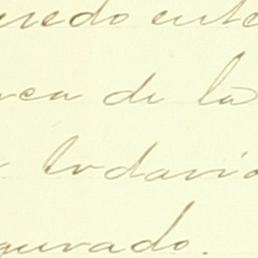 uedo ente
rca de la
todavia
gurado.